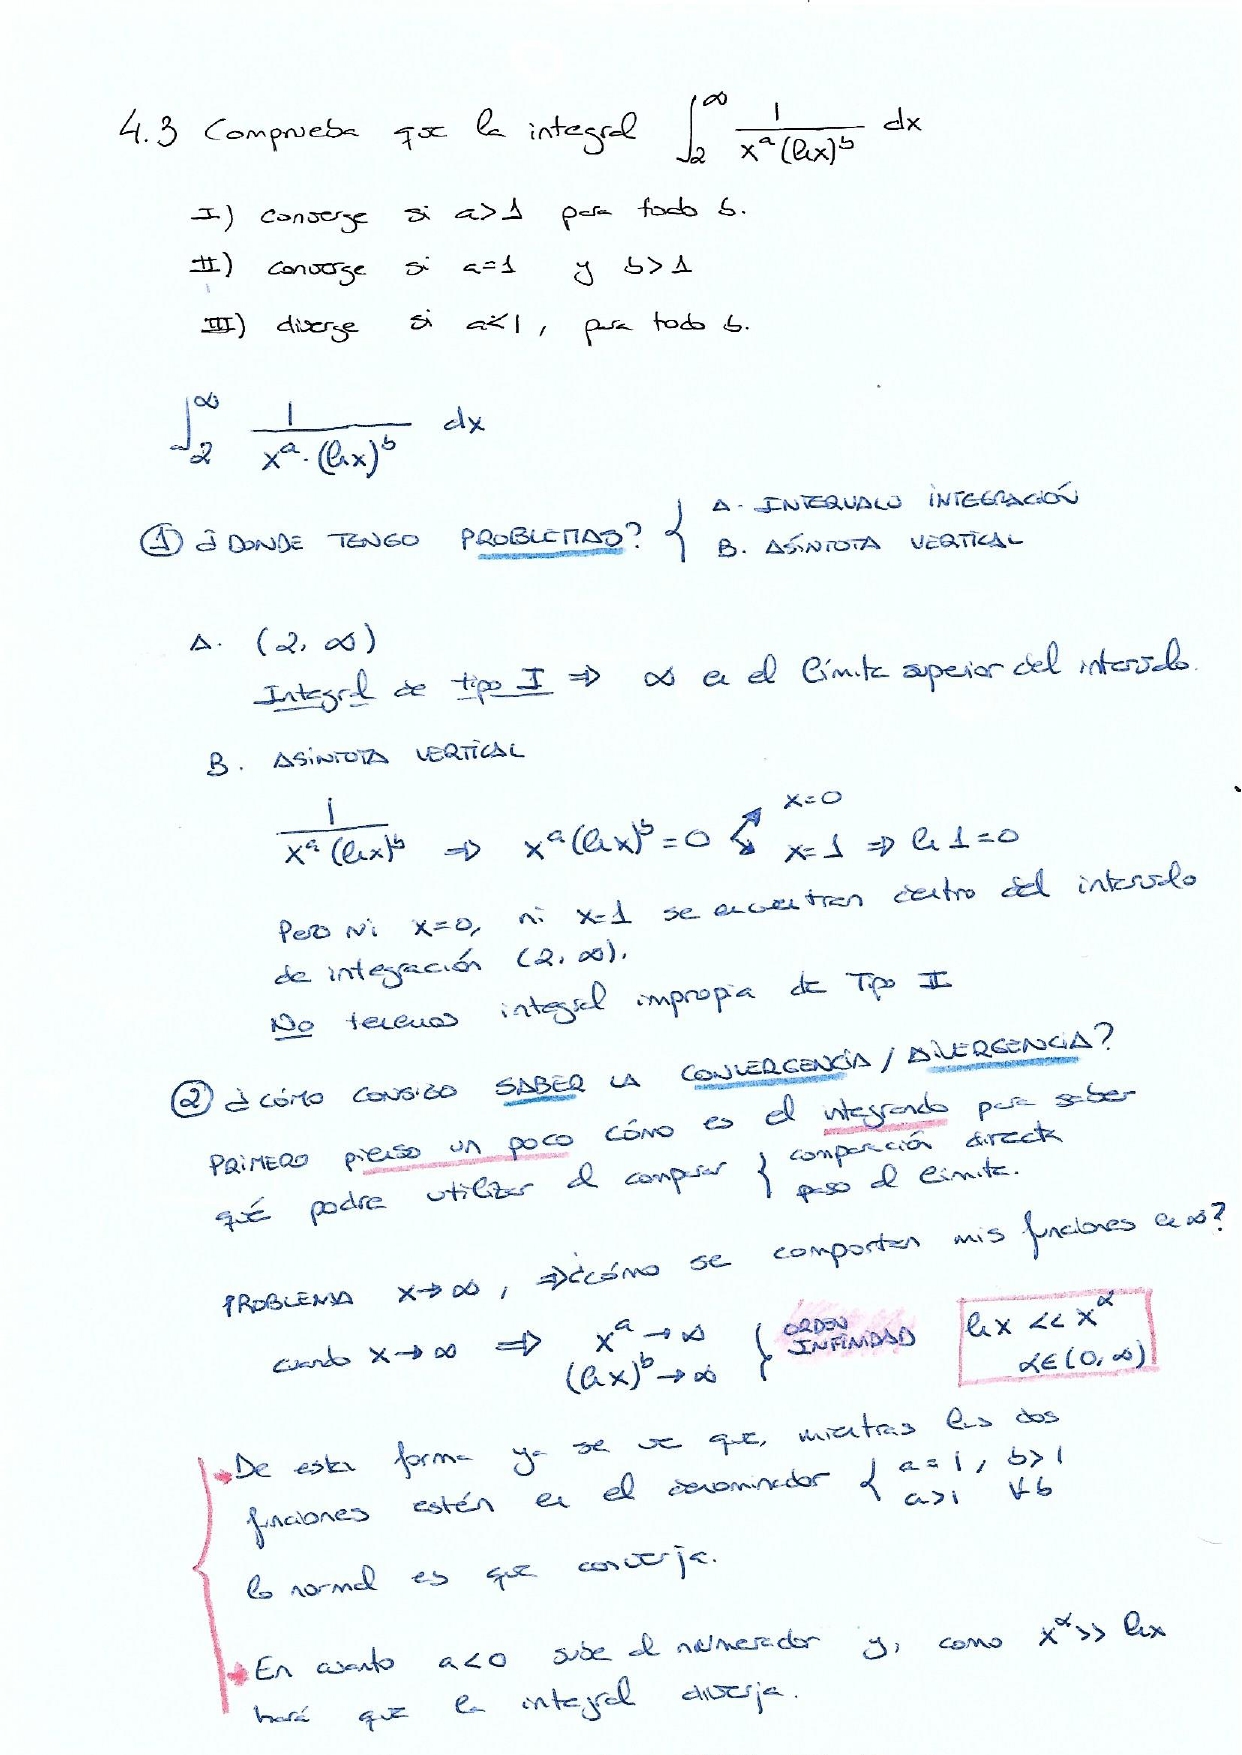 4.3 Comprueba que la integral ∫₂^∞ 1/(x^a (lnx)^b) dx
I) converge si a>1 para todo b.
II) converge si a=1 y b>1
III) diverge si a<1, para todo b.
∫₂^∞ 1/(x^a · (lnx)^b) dx
① ¿DONDE TENGO PROBLEMAS? { A. INTERVALO INTEGRACIÓN
B. ASÍNTOTA VERTICAL
A. (2, ∞)
Integral de tipo I ⇒ ∞ en el límite superior del intervalo.
B. ASÍNTOTA VERTICAL
1/(x^a (lnx)^b) ⇒ x^a (lnx)^b = 0 x=0
x=1 ⇒ ln 1=0
Pero Ni x=0, ni x=1 se encuentran dentro del intervalo
de integración (2, ∞).
No tenemos integral impropia de Tipo II
② ¿CÓMO CONSIGO SABER LA CONVERGENCIA / DIVERGENCIA?
PRIMERO pienso un poco cómo es el integrando para saber
qué podre utilizar al comparar { comparación directa
paso al límite.
PROBLEMA x→∞, ⇒¿cómo se comportan mis funciones en ∞?
cuando x→∞ ⇒ x^a →∞
(lnx)^b →∞ } ORDEN INFINIDAD lnx << x^α
α∈(0, ∞)
De esta forma ya se ve que, mientras las dos
funciones estén en el denominador { a=1, b>1
a>1 ∀b
lo normal es que converja.
En cuanto a<0 sube al numerador y, como x^α >> lnx
hará que la integral diverja.